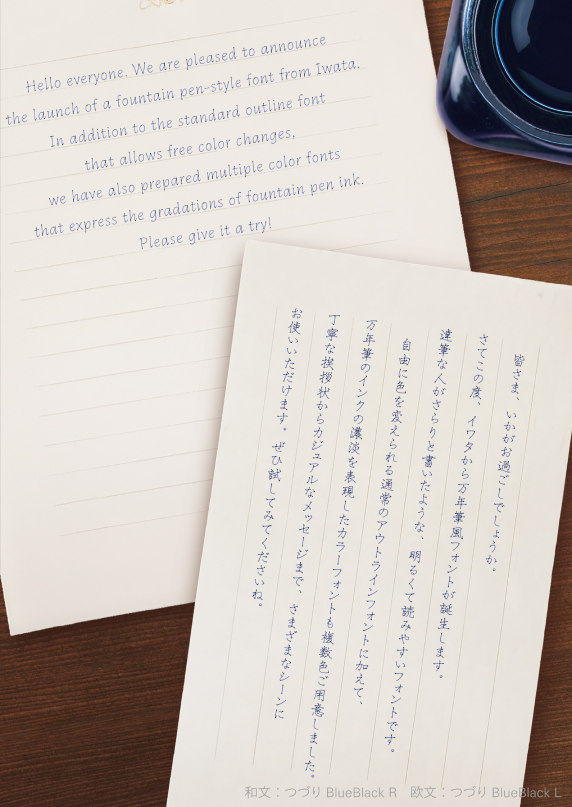 Hello everyone. We are pleased to announce
the launch of a fountain pen-style font from Iwata.
In addition to the standard outline font
that allows free color changes,
we have also prepared multiple color fonts
that express the gradations of fountain pen ink.
Please give it a try!
皆さま、いかがお過ごしでしょうか。
さてこの度、イワタから万年筆風フォントが誕生します。
達筆な人がさらりと書いたような、明るくて読みやすいフォントです。
自由に色を変えられる通常のアウトラインフォントに加えて、
万年筆のインクの濃淡を表現したカラーフォントも複数色ご用意しました。
丁寧な挨拶状からカジュアルなメッセージまで、さまざまなシーンに
お使いいただけます。ぜひ試してみてくださいね。
和文：つづり BlueBlack R　欧文：つづり BlueBlack L